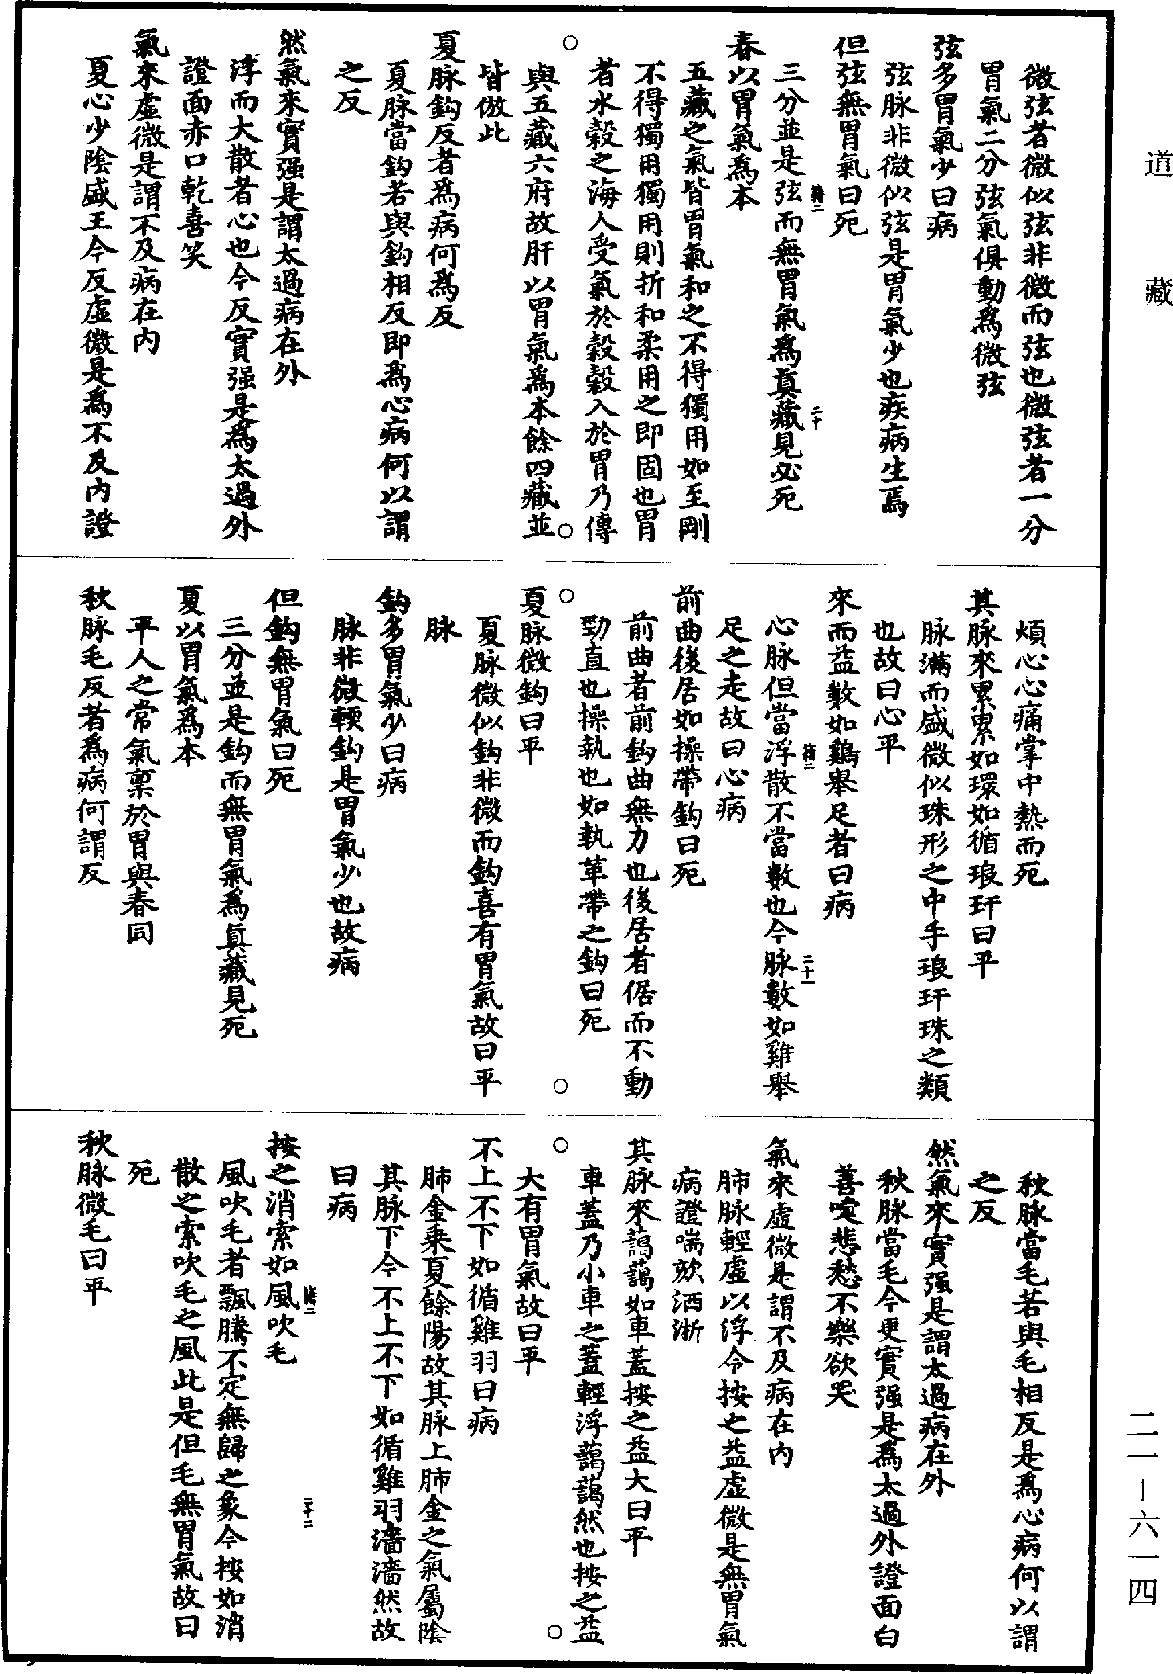 道藏
微弦者微似弦非微而弦也微弦者一分
胃氣二分弦氣俱動為微弦
弦多胃氣少曰病
弦脉非微似弦是胃氣少也疾病生焉
但弦無胃氣曰死
三分並是弦而無胃氣為真藏見必死
春以胃氣為本
五藏之氣皆胃氣和之不得獨用如至剛
不得獨用獨用則折和柔用之即固也胃
者水穀之海人受氣於穀穀入於胃乃傳
與五藏六府故肝以胃氣為本餘四藏並
皆倣此
夏脉鈎反者為病何為反
夏脉當鈎若與鈎相反即為心病何以謂
之反
然氣來實强是謂太過病在外
浮而大散者心也今反實强是為太過外
證面赤口乾喜笑
氣來虛微是謂不及病在內
夏心少陰盛王今反虛微是為不及內證
煩心心痛掌中熱而死
其脉來累累如環如循琅玕曰平
脉滿而盛微似珠形之中手琅玕珠之類
也故曰心平
來而益數如鷄舉足者曰病
心脉但當浮散不當數也今脉數如雞舉
足之走故曰心病
前曲後居如操帶鈎曰死
前曲者前鈎曲無力也後居者倨而不動
勁直也操執也如執革帶之鈎曰死
夏脉微鈎曰平
夏脉微似鈎非微而鈎喜有胃氣故曰平
脉
鈎多胃氣少曰病
脉非微輭鈎是胃氣少也故病
但鈎無胃氣曰死
三分並是鈎而無胃氣為真藏見死
夏以胃氣為本
平人之常氣稟於胃與春同
秋脉毛反者為病何謂反
秋脉當毛若與毛相反是為心病何以謂
之反
然氣來實强是謂太過病在外
秋脉當毛今更實强是為太過外證面白
善嚏悲愁不樂欲哭
氣來虛微是謂不及病在內
肺脉輕虛以浮今按之益虛微是無胃氣
病證喘欬洒淅
其脉來藹藹如車蓋按之益大曰平
車蓋乃小車之蓋輕浮藹藹然也按之益
大有胃氣故曰平
不上不下如循雞羽曰病
肺金乘夏餘陽故其脉上肺金之氣屬陰
其脉下今不上不下如循雞羽濇濇然故
曰病
按之消索如風吹毛
風吹毛者飄騰不定無歸之象今按如消
散之索吹毛之風此是但毛無胃氣故曰
死
秋脉微毛曰平
二一－六一四